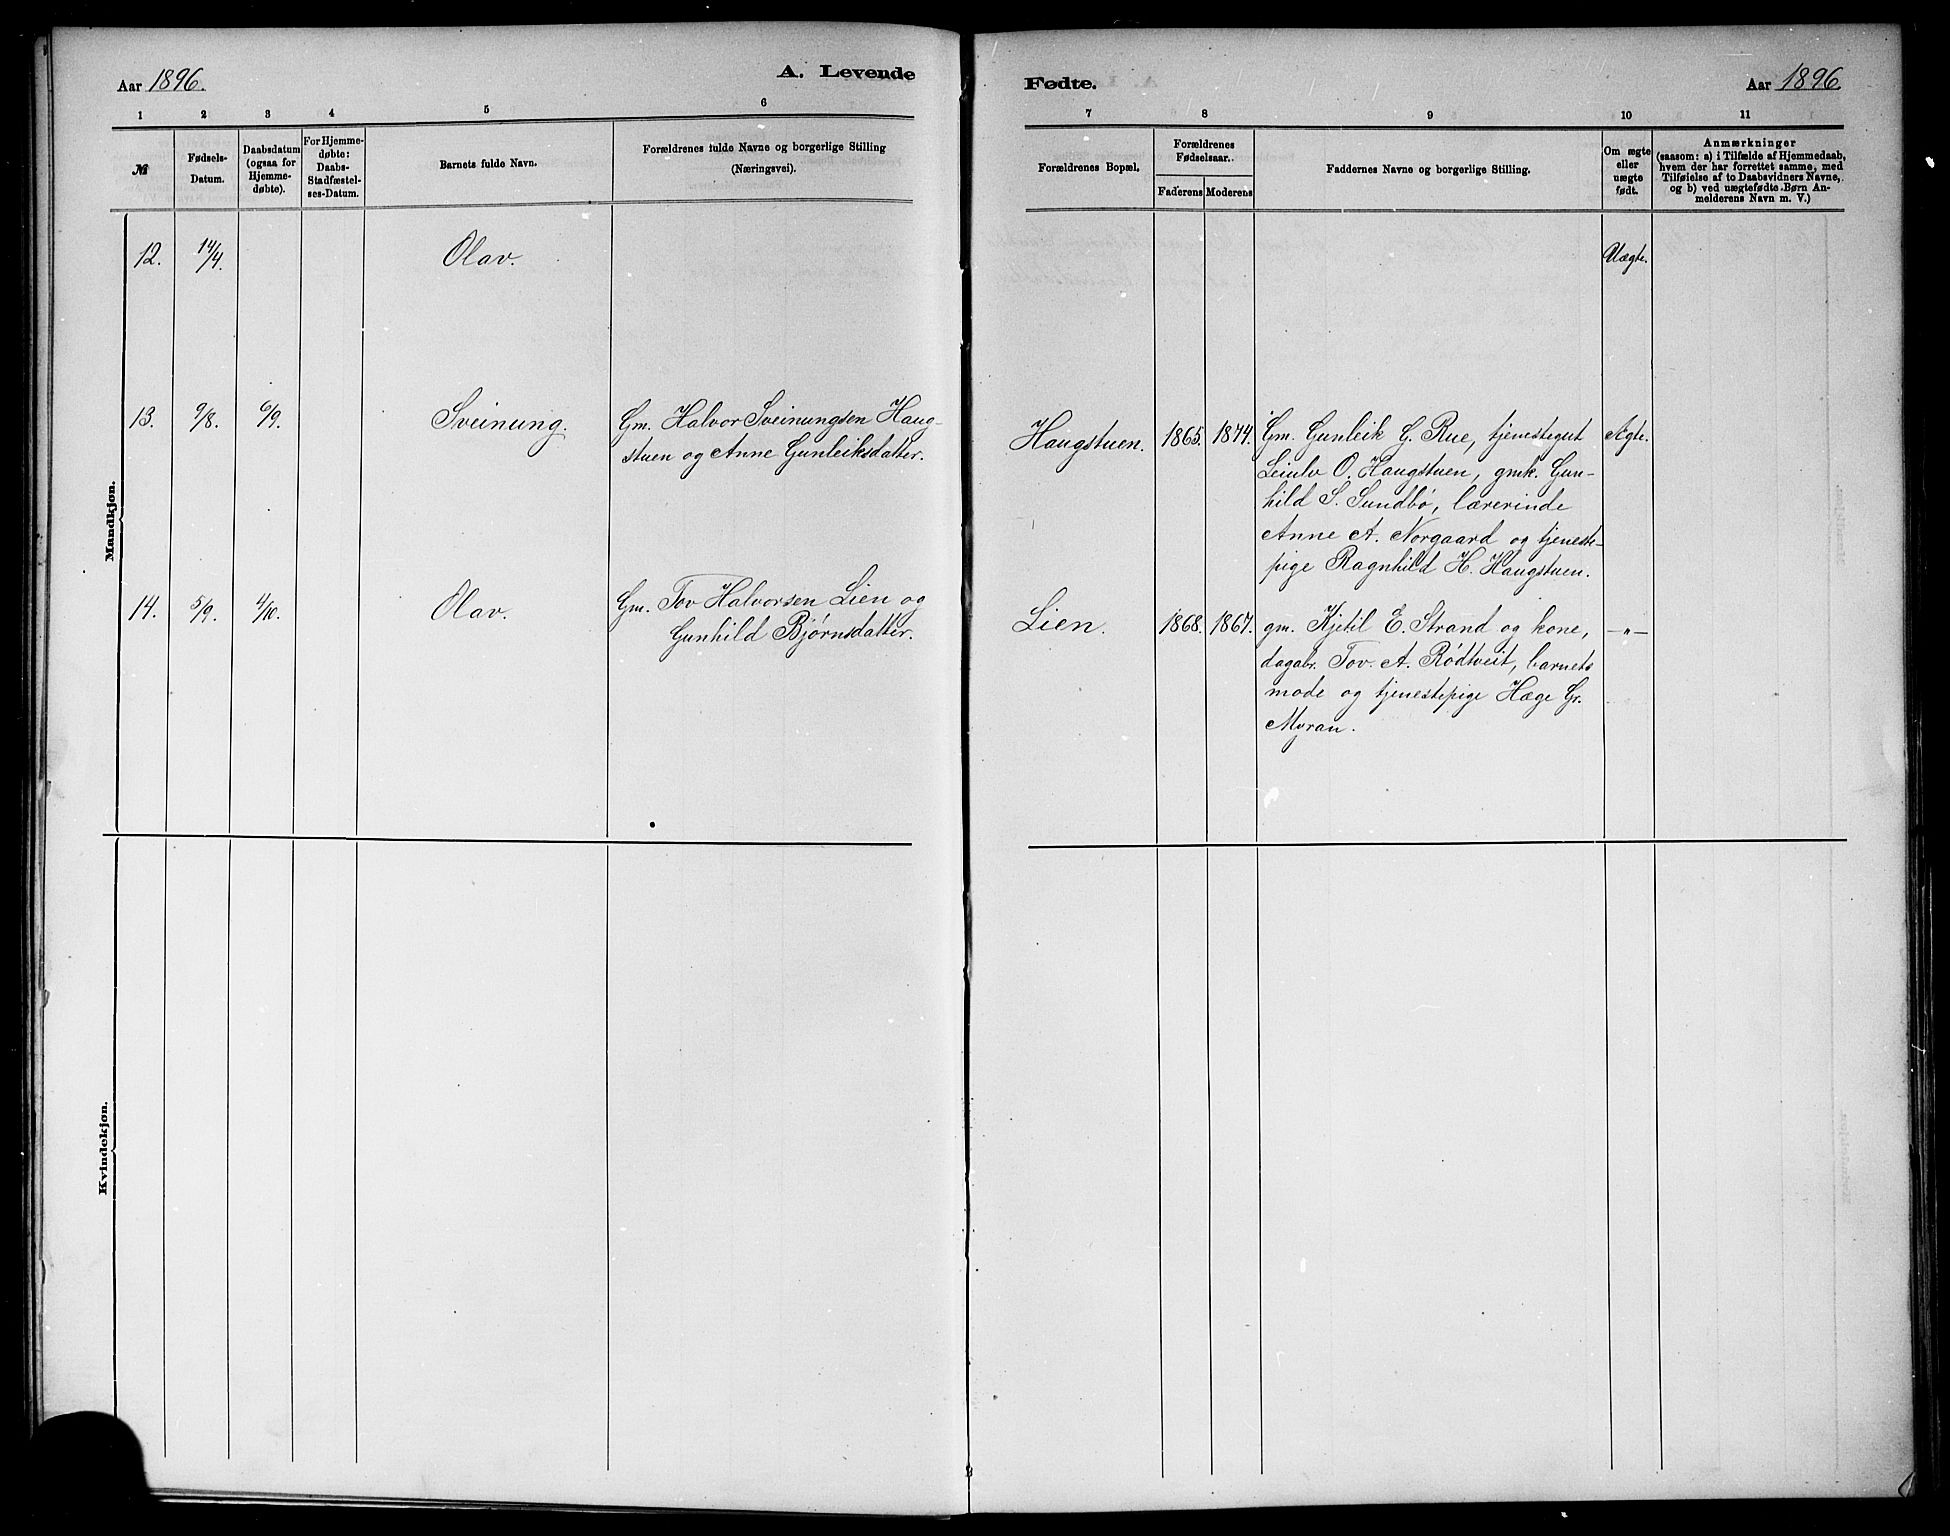 Aar 1896.
A. Levende
1 2 3 4 5 6
№
Fødsels-
Datum.
Daabsdatum
(ogsaa for
Hjemme-
døbte).
For Hjemme-
døbte:
Daabs-
Stadfæstel-
ses-Datum.
Barnets fulde Navn.
Forældrenes fulde Navne og borgerlige Stilling
(Næringsvei).
Mandkjøn.
12. 14/4. Olav.
13. 9/8. 6/9. Sveinung. Gm. Halvor Sveinungsen Haug-
stuen og Anne Gunleiksdatter.
14. 5/9. 4/10. Olav. Gm. Tov Halvorsen Lien og
Gunhild Bjørnsdatter.
Kvindekjøn.
Fødte.
Aar 1896.
7 8 9 10 11
Forældrenes Bopæl.
Forældrenes
Fødselsaar.
Faderens Moderens
Faddernes Navne og borgerlige Stilling.
Om ægte
eller
uægte
født.
Anmærkninger
(saasom: a) i Tilfælde af Hjemmedaab,
hvem der har forrettet samme, med
Tilføielse af to Daabsvidners Navne,
og b) ved uægtefødte Børn An-
melderens Navn m. V.)
Uægte.
Haugstuen. 1865. 1874. Gm. Gunleik G. Rue, tjenestegut Ægte.
Leiulv O. Haugstuen, gmk. Gun-
hild S. Sundbø, lærerinde
Anne A. Norgaard og tjeneste-
pige Ragnhild H. Haugstuen.
Lien. 1868. 1867. gm. Kjetil E. Strand og kone, —„—
dagabr. Tov. A. Rødtveit, barnets
mode og tjenestepige Hæge Gr.
Myran.